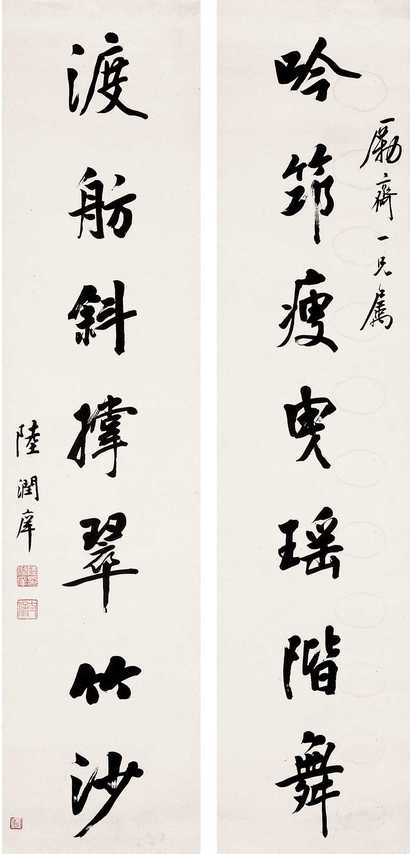 勵齋一兄屬
吟筇瘦曳瑶階舞
渡舫斜撑翠竹沙
陸潤庠